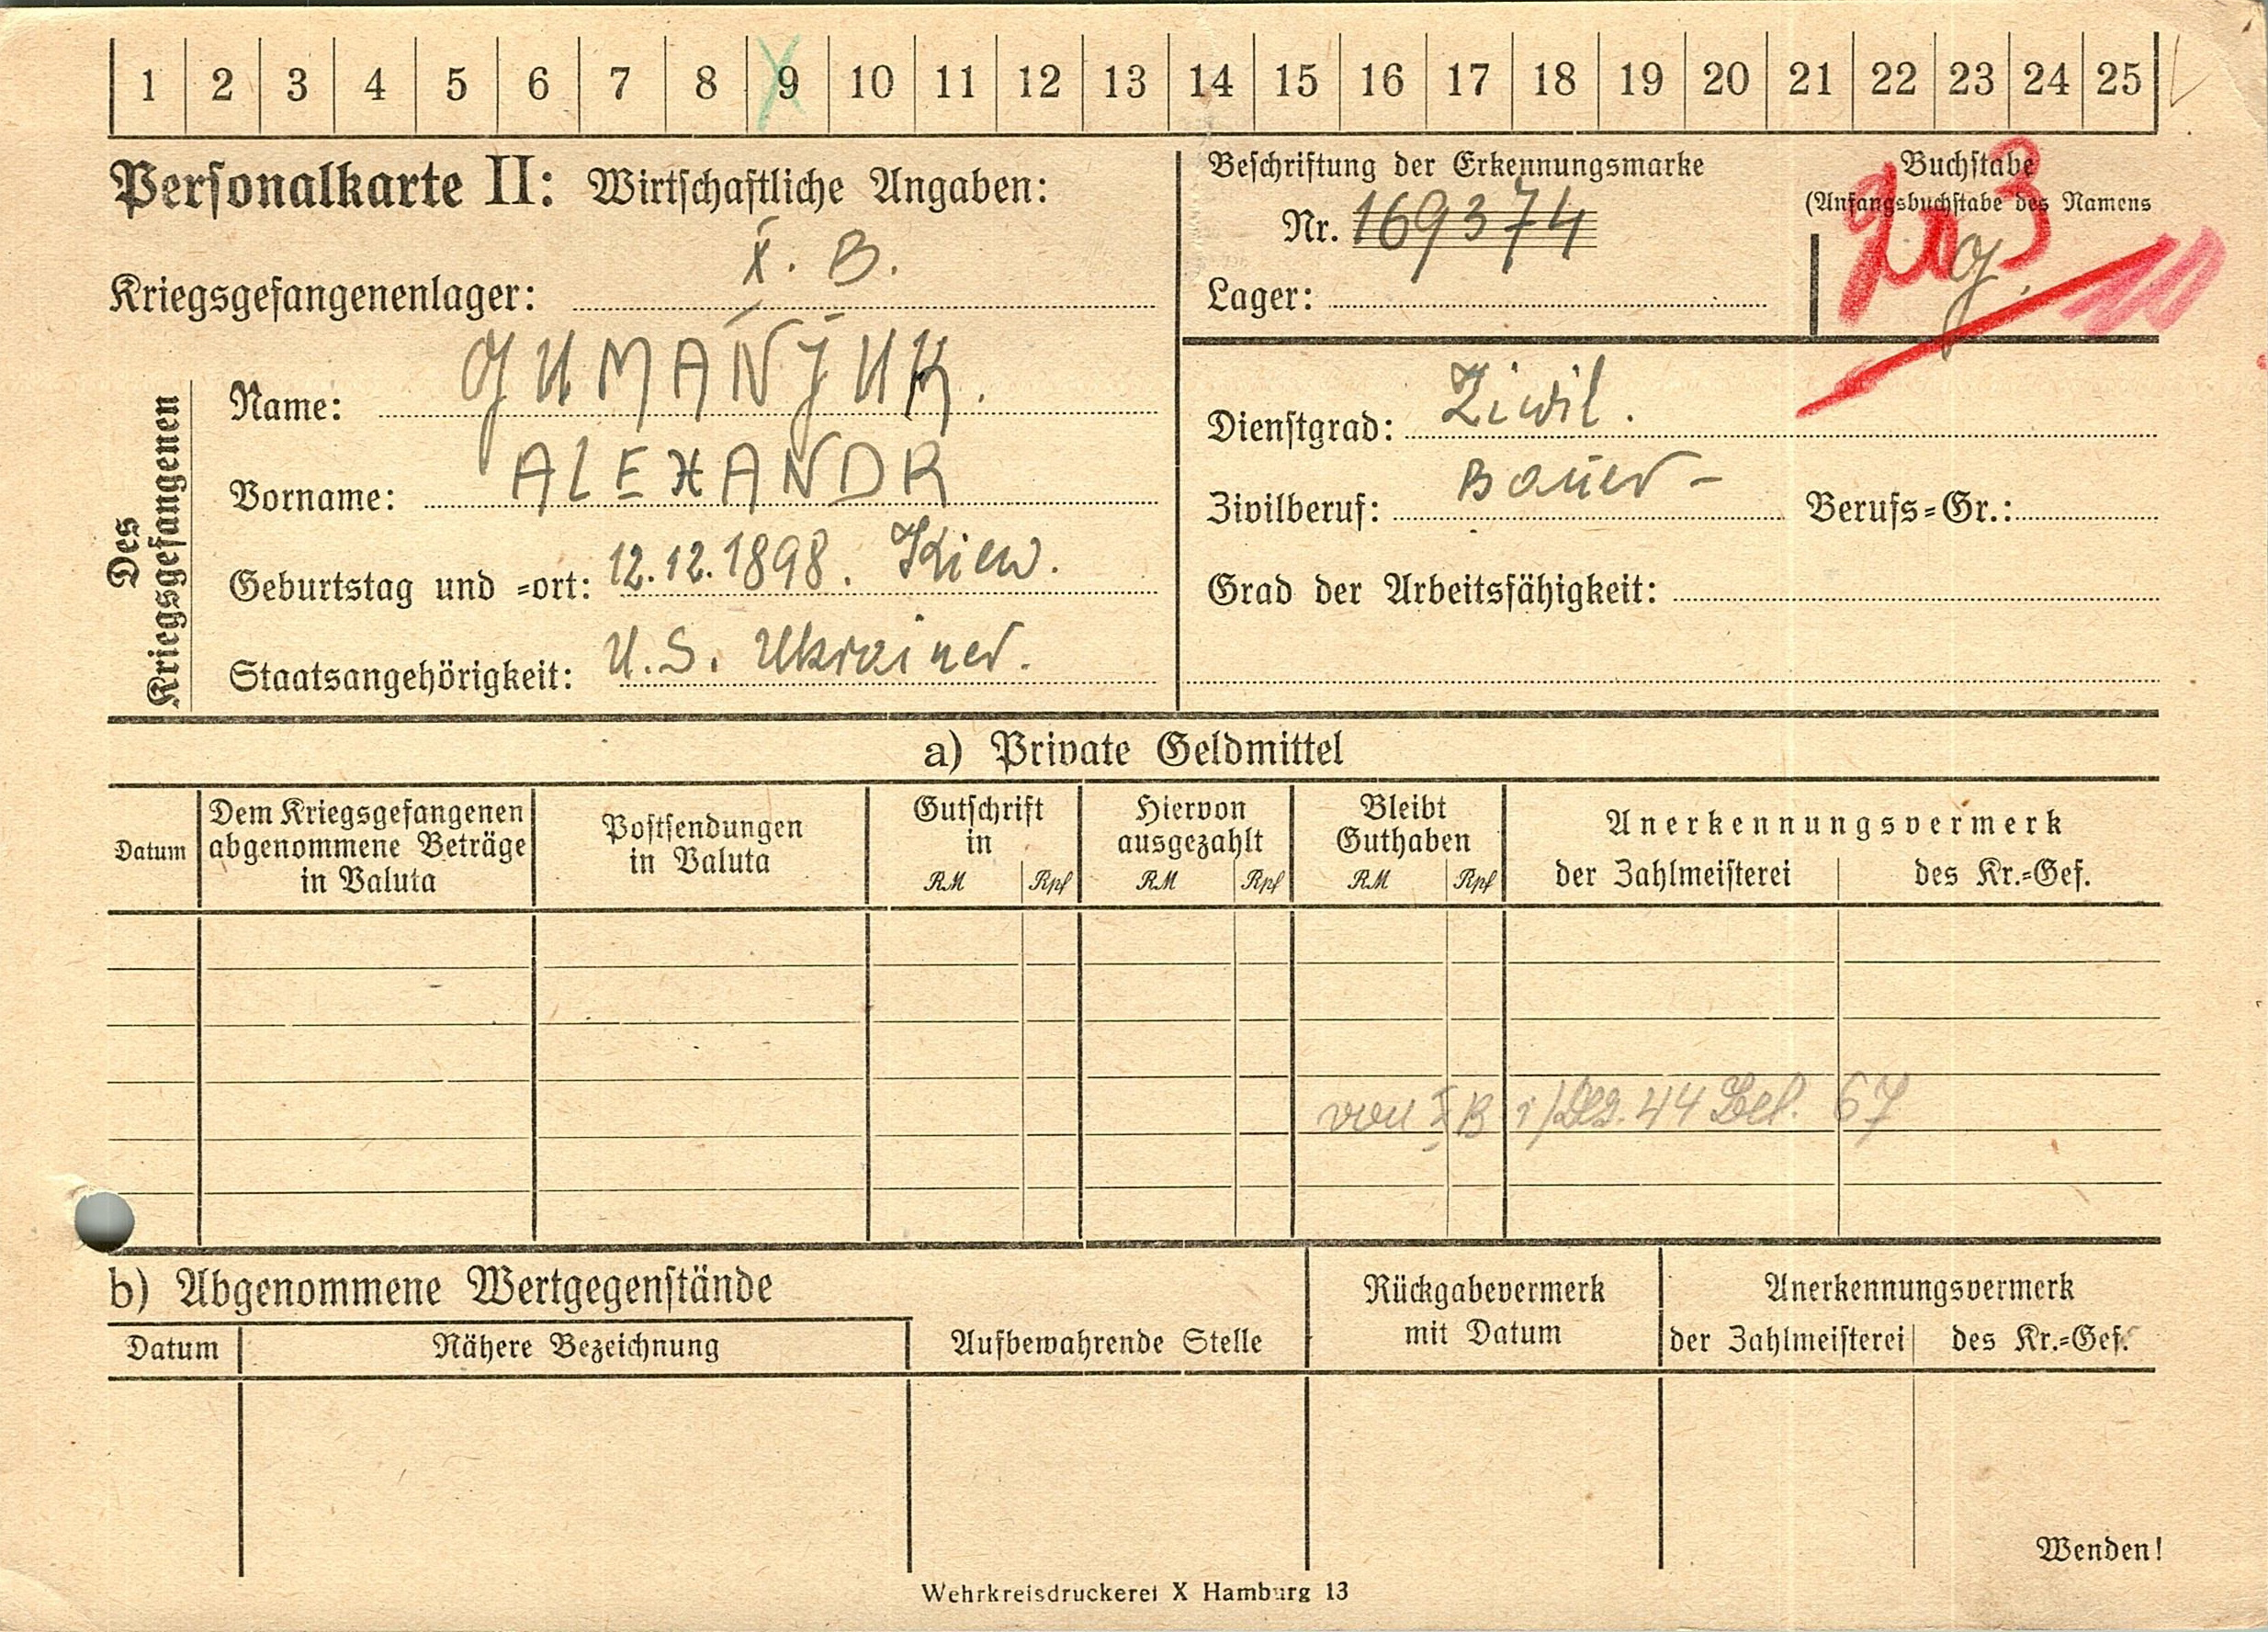 1 2 3 4 5 6 7 8 9 10 11 12 13 14 15 16 17 18 19 20 21 22 23 24 25
Personalkarte II: Wirtschaftliche Angaben:
Beschriftung der Erkennungsmarke
Nr. 169374
Lager:
Buchstabe
(Anfangsbuchstabe des Namens
G.
Kriegsgefangenenlager: X. B.
Des Kriegsgefangenen
Name: GUMANJUK.
Vorname: ALEXANDR
Geburtstag und =ort: 12.12.1898. Kiew.
Staatsangehörigkeit: U.S. Ukrainer.
Dienstgrad: Ziwil.
Zivilberuf: Bauer - Berufs=Gr.:
Grad der Arbeitsfähigkeit:
a) Private Geldmittel
Datum
Dem Kriegsgefangenen
abgenommene Beträge
in Valuta
Postsendungen
in Valuta
Gutschrift
in
RM Rpf
Hiervon
ausgezahlt
RM Rpf
Bleibt
Guthaben
RM Rpf
Anerkennungsvermerk
der Zahlmeisterei des Kr.=Gef.
von X B 44 Bel. 67
b) Abgenommene Wertgegenstände
Datum Nähere Bezeichnung Aufbewahrende Stelle
Rückgabevermerk
mit Datum
Anerkennungsvermerk
der Zahlmeisterei des Kr.=Gef.
Wenden!
Wehrkreisdruckerei X Hamburg 13